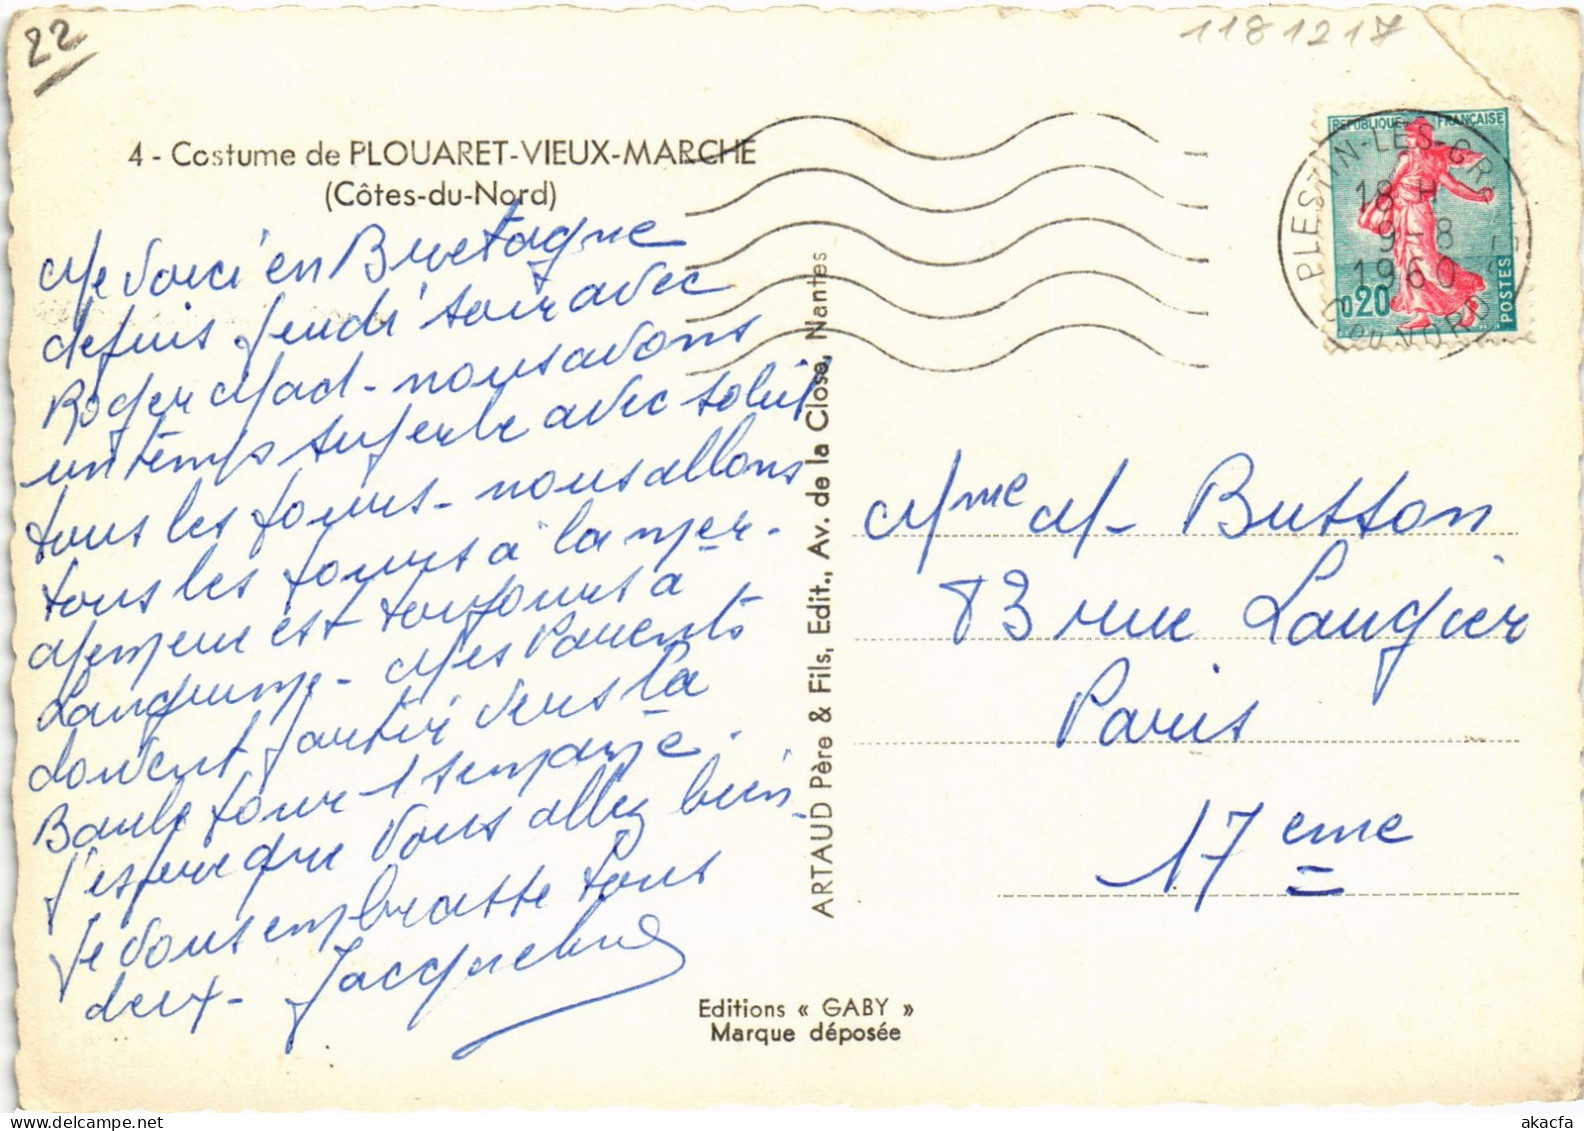 22
1181217
4 - Costume de PLOUARET-VIEUX-MARCHE
(Côtes-du-Nord)
Me voici en Bretagne
depuis Jeudi soir avec
Roger Mad - nous avons
un temps superbe avec soleil
tous les jours - nous allons
tous les jours à la mer.
est toujours à
Mes Parents
doivent partir vers la
Baule pour 1 semaine.
J'espère que vous allez bien.
Je vous embrasse tous
deux - Jacqueline
ARTAUD Père & Fils, Edit., Av. de la Close, Nantes
Editions « GABY »
Marque déposée
REPUBLIQUE FRANÇAISE
0,20
POSTES
PLESTIN-LES-GR
18 H
9-8
1960
C. DU NORD
Mme M- Butson
83 rue Laugier
Paris
17 eme
www.akacfa.com
akacfa